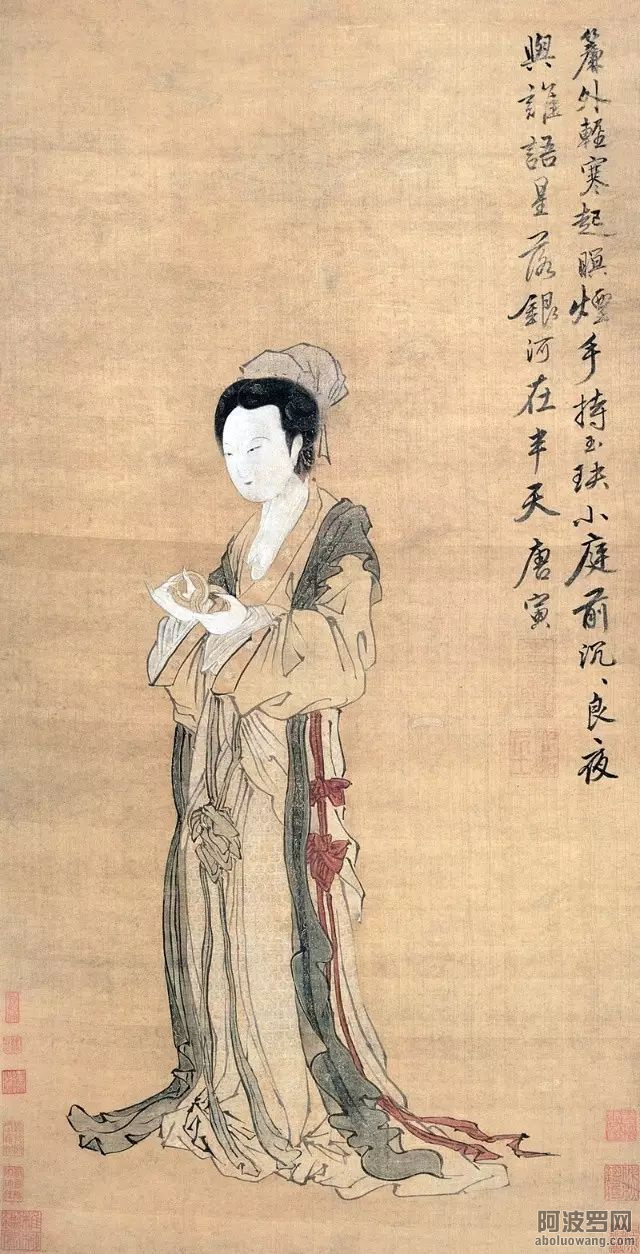 簾外輕寒起暝煙手持玉玦小庭前沉、良夜
與誰語星落銀河在半天 唐寅
阿波罗网
aboluowang.com